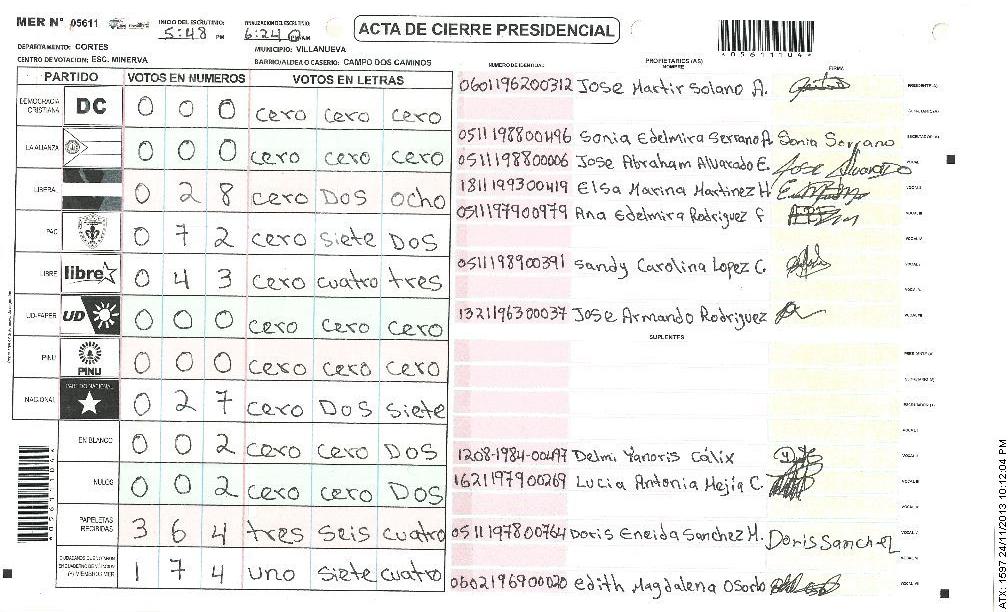 MER N° 05611
INICIO DEL ESCRUTINIO: 5:48 PM
FINALIZACION DEL ESCRUTINIO: 6:24
ACTA DE CIERRE PRESIDENCIAL
*05611104*
DEPARTAMENTO: CORTES
MUNICIPIO: VILLANUEVA
CENTRO DE VOTACION: ESC. MINERVA
BARRIO/ALDEA O CASERIO: CAMPO DOS CAMINOS
PARTIDO VOTOS EN NUMEROS VOTOS EN LETRAS
DEMOCRACIA CRISTIANA DC 0 0 0 cero cero cero
LA ALIANZA 0 0 0 cero cero cero
LIBERAL 0 2 8 cero DOS ocho
PAC 0 7 2 cero siete DOS
LIBRE libre 0 4 3 cero cuatro tres
UD-FAPER UD 0 0 0 cero cero cero
PINU PINU 0 0 0 cero cero cero
NACIONAL PARTIDO NACIONAL 0 2 7 cero DOS siete
EN BLANCO 0 0 2 cero cero DOS
NULOS 0 0 2 cero cero DOS
PAPELETAS RECIBIDAS 3 6 4 tres seis cuatro
1 7 4 uno siete cuatro
NUMERO DE IDENTIDAD
PROPIETARIOS (AS)
NOMBRE
FIRMA
0601196200312 Jose Martir Solano A.
0511198800496 Sonia Edelmira Serrano A. Sonia Serrano
0511198800006 Jose Abraham Alvarado E. Jose Alvarado
1811199300419 Elsa Marina Martinez H
0511197900979 Ana Edelmira Rodriguez F
0511198900391 Sandy Carolina Lopez C.
1321196300037 Jose Armando Rodriguez
SUPLENTES
1208-1984-00497 Delmi Yanoris Cálix
1621197900269 Lucia Antonia Mejia C.
0511197800764 Doris Eneida Sanchez M. Doris Sanchez
0602196900020 edith Magdalena Osorto
*05611104*
ATX: 1597 24/11/2013 10:12:04 PM